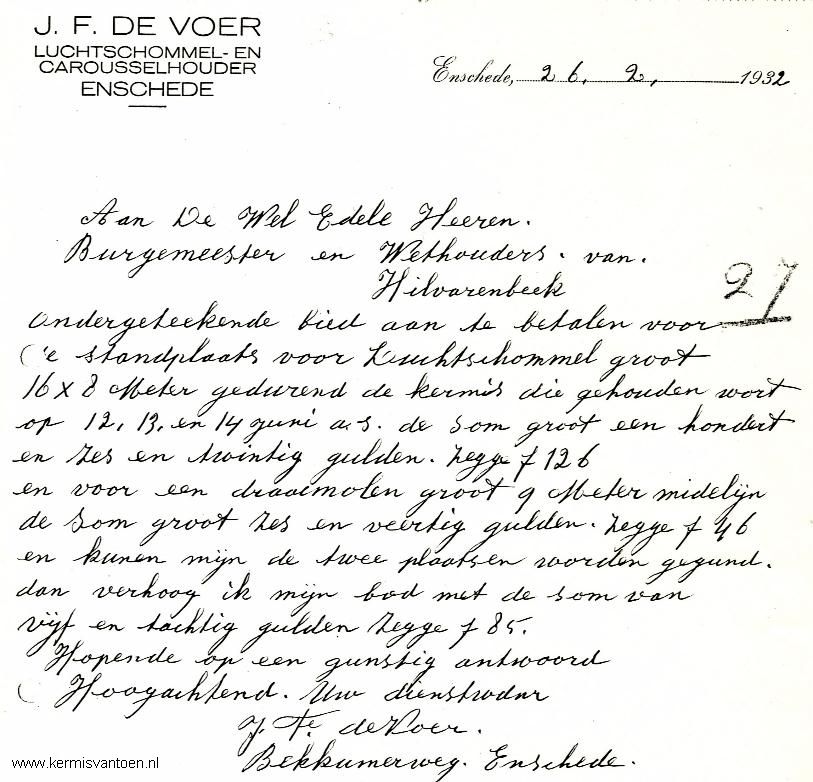 J. F. DE VOER
LUCHTSCHOMMEL- EN
CAROUSSELHOUDER
ENSCHEDE
Enschede, 26. 2. 1932
Aan De Wel Edele Heeren.
Burgemeester en Wethouders. van.
Hilvarenbeek
27
Ondergeteekende bied aan te betalen voor
'e standplaats voor Luchtschommel groot
16 x 8 Meter gedurend de kermis die gehouden wort
op 12, 13, en 14 juni a.s. de som groot een hondert
en zes en twintig gulden. zegge f 126
en voor een draaimolen groot 9 Meter midelijn
de som groot zes en veertig gulden. zegge f 46
en kunen mijn de twee plaatsen worden gegund.
dan verhoog ik mijn bod met de som van
vijf en tachtig gulden zegge f 85.
Hopende op een gunstig antwoord
Hoogachtend. Uw dienstwdnr
J. F. de Voer.
Bekkumerweg. Enschede.
www.kermisvantoen.nl